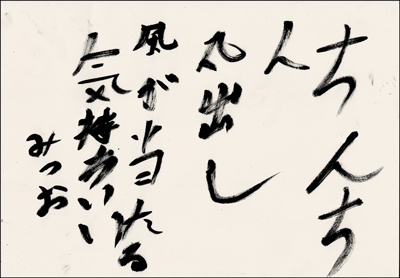 ちんち
ん
丸出し
風が当たる
気持ちいい
みつお